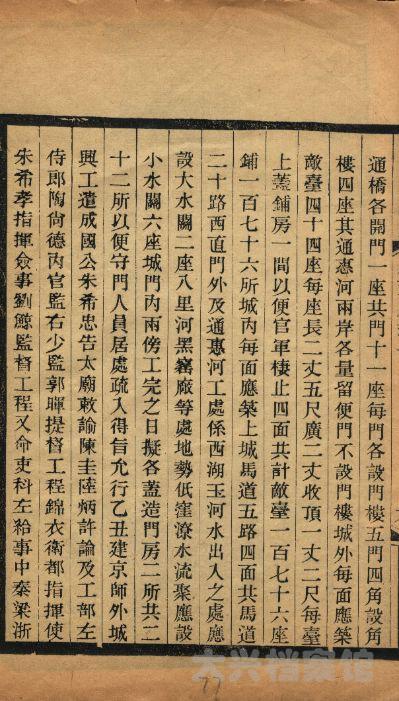 通橋各開門一座共門十一座每門各設門樓五門四角設角
樓四座其通惠河兩岸各量留便門不設門樓城外每面應築
敵臺四十四座每座長二丈五尺廣二丈收頂一丈二尺每臺
上蓋鋪房一間以便官軍棲止四面共計敵臺一百七十六座
鋪一百七十六所城內每面應築上城馬道五路四面共馬道
二十路西直門外及通惠河工處係西湖玉河水出入之處應
設大水關二座八里河黑窰廠等處地勢低窪潦水流聚應設
小水關六座城門內兩傍工完之日擬各蓋造門房二所共二
十二所以便守門人員居處疏入得旨允行乙丑建京師外城
興工遣成國公朱希忠告太廟敕諭陳圭陸炳許論及工部左
侍郎陶尚德內官監右少監郭暉提督工程錦衣衛都指揮使
朱希孝指揮僉事劉鯨監督工程又命吏科左給事中秦梁浙
大兴档案馆
77